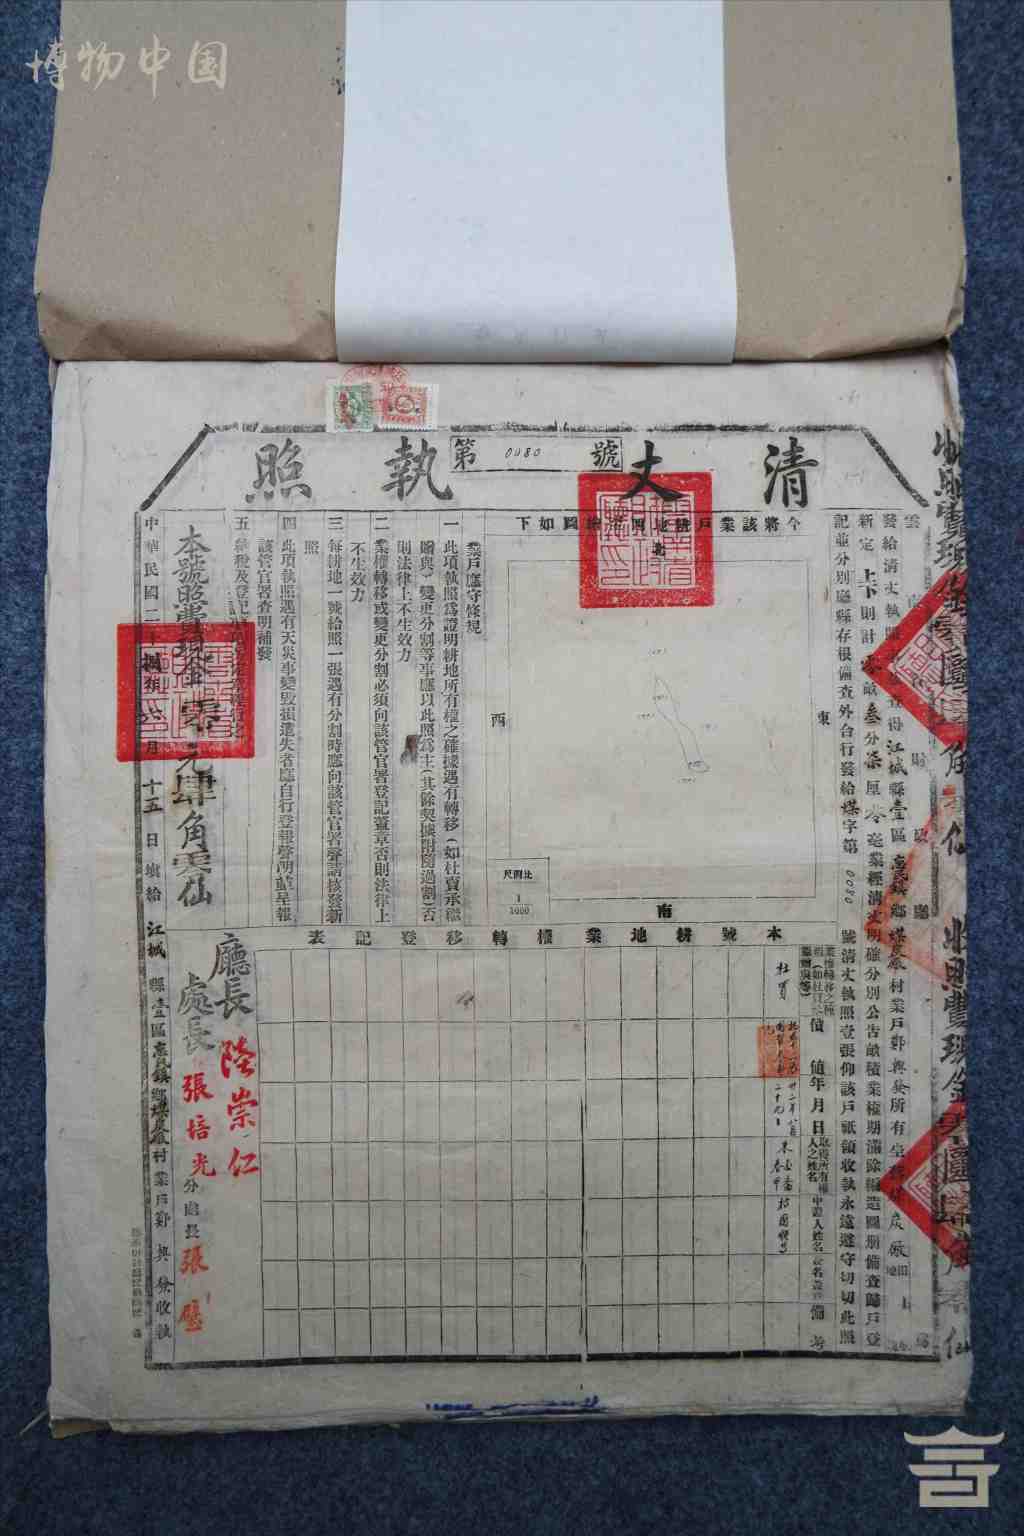 博物中国
清丈執照
第0080號
雲南財政廳
發給清丈執照
江城縣壹區惠民鎮鄉煤炭廠村業戶鄭興發所有
新定上下則計零畝叁分柒厘零毫業經清丈明確分別公告畝積業權期滿除編造圖册備查歸戶登
記並分別廳縣存根備查外合行發給煤字第0080號清丈執照壹張仰該戶祗領收執永遠遵守切切此照
今將該業戶耕地四至繪圖如下
北
東
西
南
比例尺
1
1000
業戶應守條規
一 此項執照爲證明耕地所有權之確據遇有轉移(如杜賣承繼
贈與)變更分割等事應以此照爲主(其餘契據附隨過割)否
則法律上不生效力
二 業權轉移或變更分割必須向該管官署登記蓋章否則法律上
不生效力
三 每耕地一號給照一張遇有分割時應向該管官署聲請核發新
照
四 此項執照遇有天災事變毀損遺失者應自行登報聲明並呈報
該管官署查明補發
五
本號照費現金零元肆角零仙
中華民國二十捌年六月十五日填給
江城縣壹區惠民鎮鄉煤炭廠村業戶鄭興發收執
本號耕地業權轉移登記表
價值
年月日
取得所有權人之姓名
中證人姓名
備考
杜賣
廳長 陸崇仁
處長 張培光
分處長 張